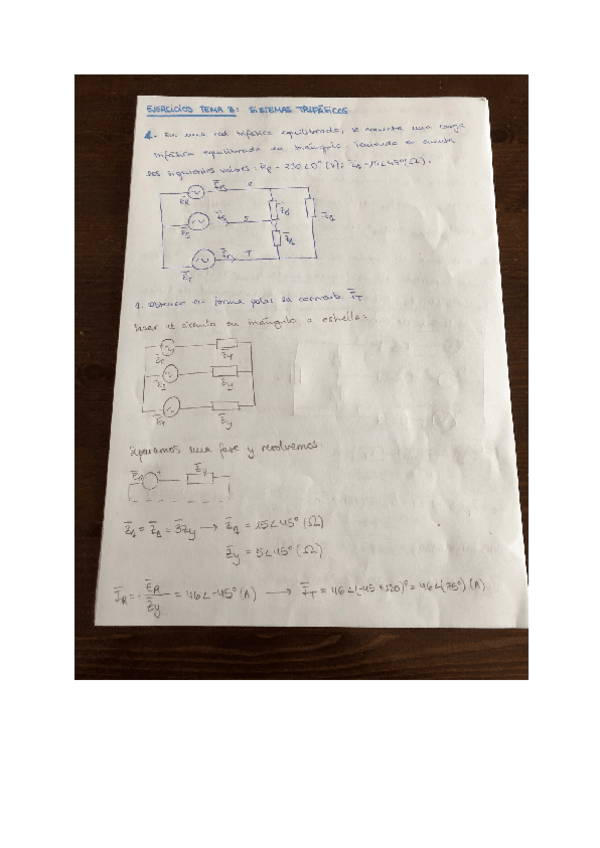 EJERCICIOS TEMA 3: SISTEMAS TRIFÁSICOS
1. En una red trifásica equilibrada, se conecta una carga
trifásica equilibrada en triángulo. Teniendo en cuenta
los siguientes valores: E̅R = 230∠0° (V); Z̅Δ = 15∠45° (Ω).
E̅R I̅R R
E̅S I̅S S Z̅Δ Z̅Δ
E̅T I̅T T Z̅Δ
1. Obtener en forma polar la corriente I̅T
Pasar el circuito en triángulo a estrella:
E̅R Z̅y
E̅S Z̅y
E̅T Z̅y
Separamos una fase y resolvemos:
E̅R + Z̅y
Z̅Δ = 3Z̅y → Z̅Δ = 15∠45° (Ω)
Z̅y = 5∠45° (Ω)
I̅R = E̅R / Z̅y = 46∠-45° (A) → I̅T = 46∠(-45+120)° = 46∠(75°) (A)